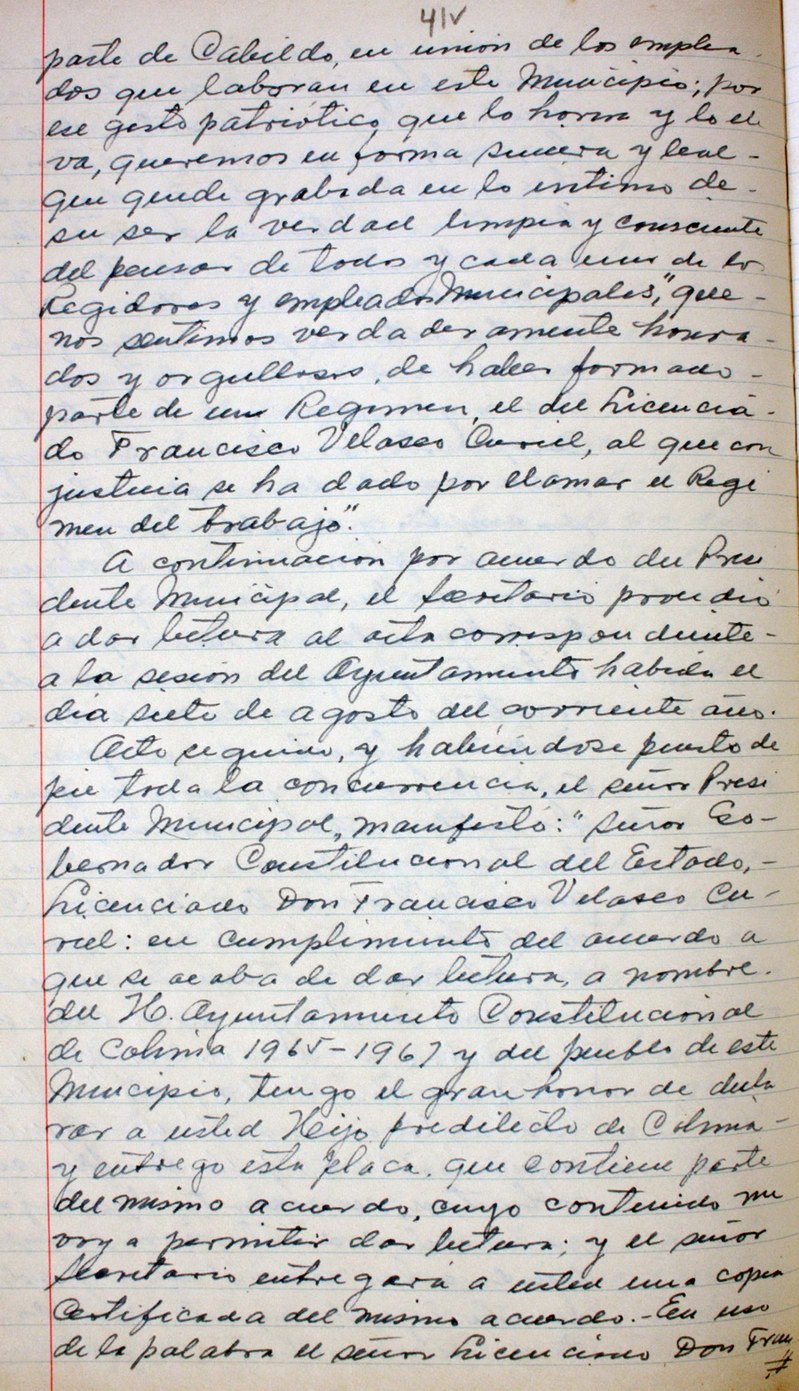 41v
parte de Cabildo, en unión de los emplea-
dos que laboran en este Municipio; por
ese gesto patriótico, que lo honra y lo ele
va, queremos en forma sincera y leal-
que quede grabada en lo íntimo de-
su ser la verdad limpia y consciente
del pensar de todos y cada uno de los
Regidores y empleados Municipales, "que-
nos sentimos verdaderamente honra-
dos y orgullosos, de haber formado-
parte de un Regimen, el del Licencia-
do Francisco Velasco Curiel, al que con
justicia se ha dado por llamar el Regi
men del trabajo".
A continuación por acuerdo del Presi
dente Municipal, el Secretario procedió
a dar lectura al acta correspondiente-
a la sesión del Ayuntamiento habida el
día siete de agosto del corriente año.
Acto seguido, y habiéndose puesto de
pie toda la concurrencia, el señor Presi
dente Municipal, manifestó: "Señor Go-
bernador Constitucional del Estado,-
Licenciado Don Francisco Velasco Cu-
riel: en cumplimiento del acuerdo a
que se acaba de dar lectura, a nombre.
del H. Ayuntamiento Constitucional
de Colima 1965-1967 y del pueblo de este
Municipio, tengo el gran honor de decla
rar a usted Hijo predilecto de Colima-
y entrego esta placa. que contiene parte
del mismo acuerdo, cuyo contenido me
voy a permitir dar lectura; y el señor
Secretario entregará a usted una copia
Certificada del mismo acuerdo.-En uso
de la palabra el señor Licenciado Don Fran